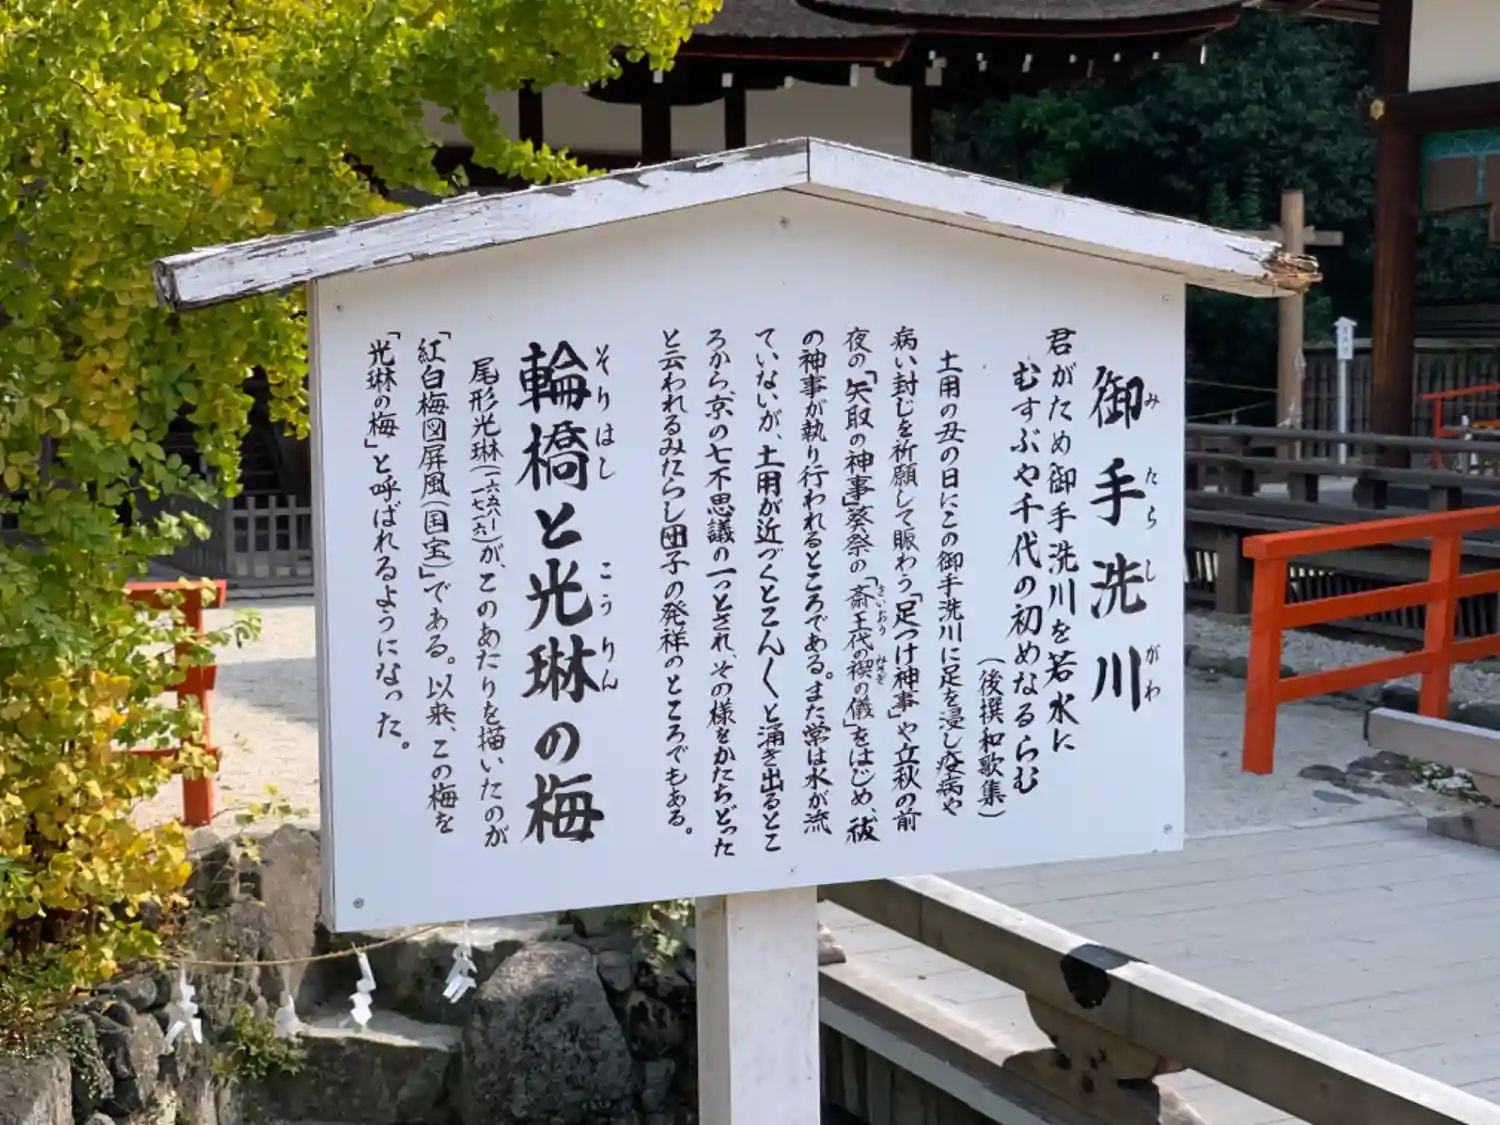 御手洗川
みたらしがわ
君がため御手洗川を若水に
むすぶや千代の初めなるらむ
（後撰和歌集）
土用の丑の日にこの御手洗川に足を浸し疫病や
病い封じを祈願して賑わう「足つけ神事」や立秋の前
夜の「矢取の神事」葵祭の「斎王代の禊の儀」をはじめ、祓
さいおう みそぎ
の神事が執り行われるところである。また常は水が流
ていないが、土用が近づくとこん〱と涌き出るとこ
ろから、京の七不思議の一つとされ、その様をかたちどった
と云われるみたらし団子の発祥のところでもある。
輪橋と光琳の梅
そりはし こうりん
尾形光琳（一六五八ー一七一六）が、このあたりを描いたのが
「紅白梅図屏風（国宝）」である。以来、この梅を
「光琳の梅」と呼ばれるようになった。